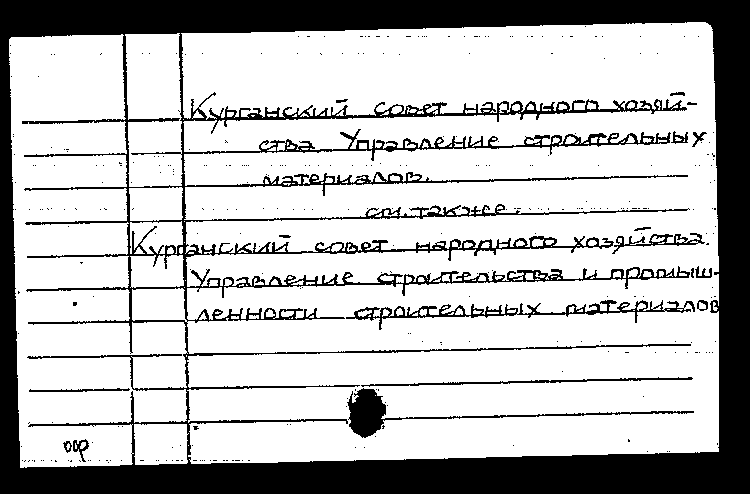 Курганский совет народного хозяй-
ства Управление строительных
материалов.
см. также.
Курганский совет народного хозяйства.
Управление строительства и промыш-
ленности строительных материалов